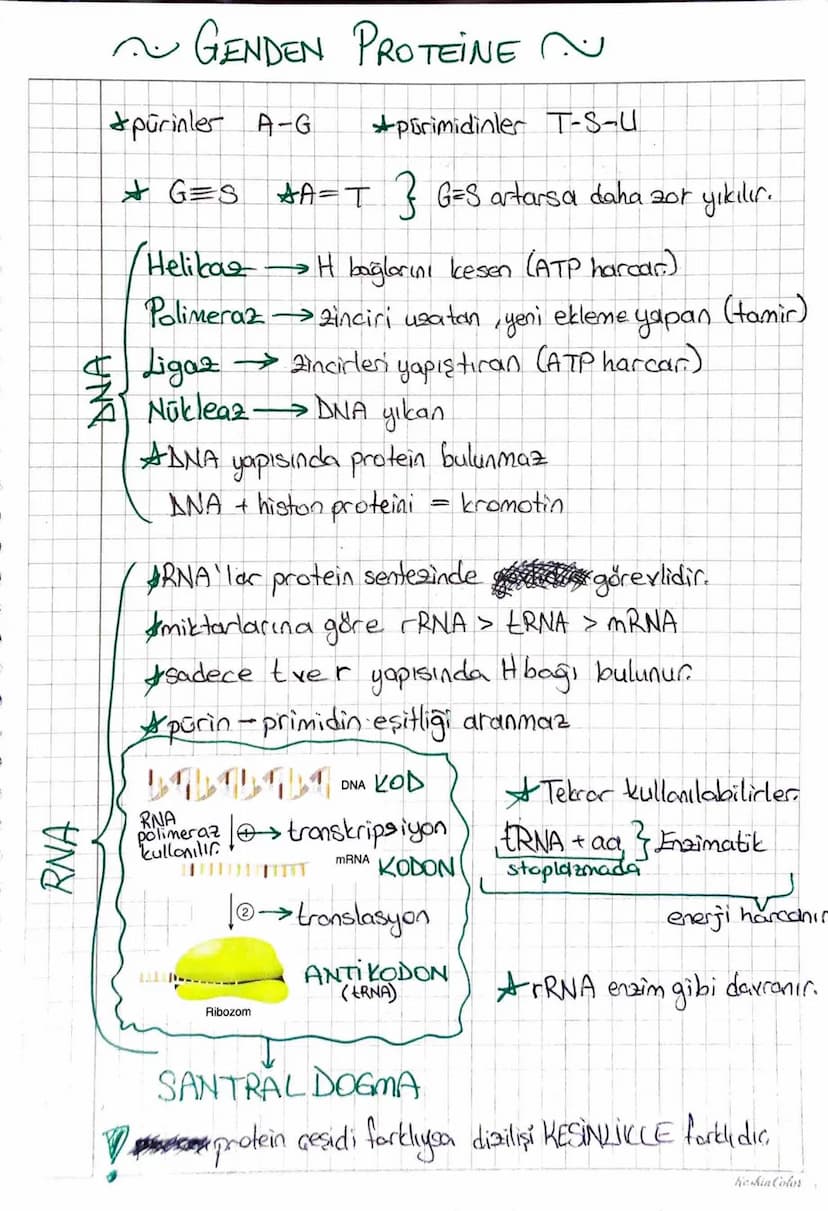 ~ GENDEN PROTEİNE ~
★pürinler A-G ★pürimidinler T-S-U
★ G≡S ★A=T } G≡S artarsa daha zor yıkılır.
DNA
Helikaz → H bağlarını kesen (ATP harcar.)
Polimeraz → zinciri uzatan, yeni ekleme yapan (tamir)
Ligaz → zincirleri yapıştıran (ATP harcar.)
Nükleaz → DNA yıkan
★DNA yapısında protein bulunmaz
DNA + histon proteini = kromotin
RNA
★RNA'lar protein sentezinde görevlidir.
★miktarlarına göre rRNA > tRNA > mRNA
★sadece t ve r yapısında H bağı bulunur.
★pürin - primidin eşitliği aranmaz
DNA KOD
RNA polimeraz kullanılır.
→ transkripsiyon
mRNA KODON
② → translasyon
ANTİKODON
(tRNA)
Ribozom
★Tekrar kullanılabilirler.
tRNA + aa } Enzimatik
stoplazmada
enerji harcanır
★rRNA enzim gibi davranır.
SANTRAL DOGMA
! protein çeşidi farklıysa dizilişi KESİNLİKLE farklıdır.
KeskinColor